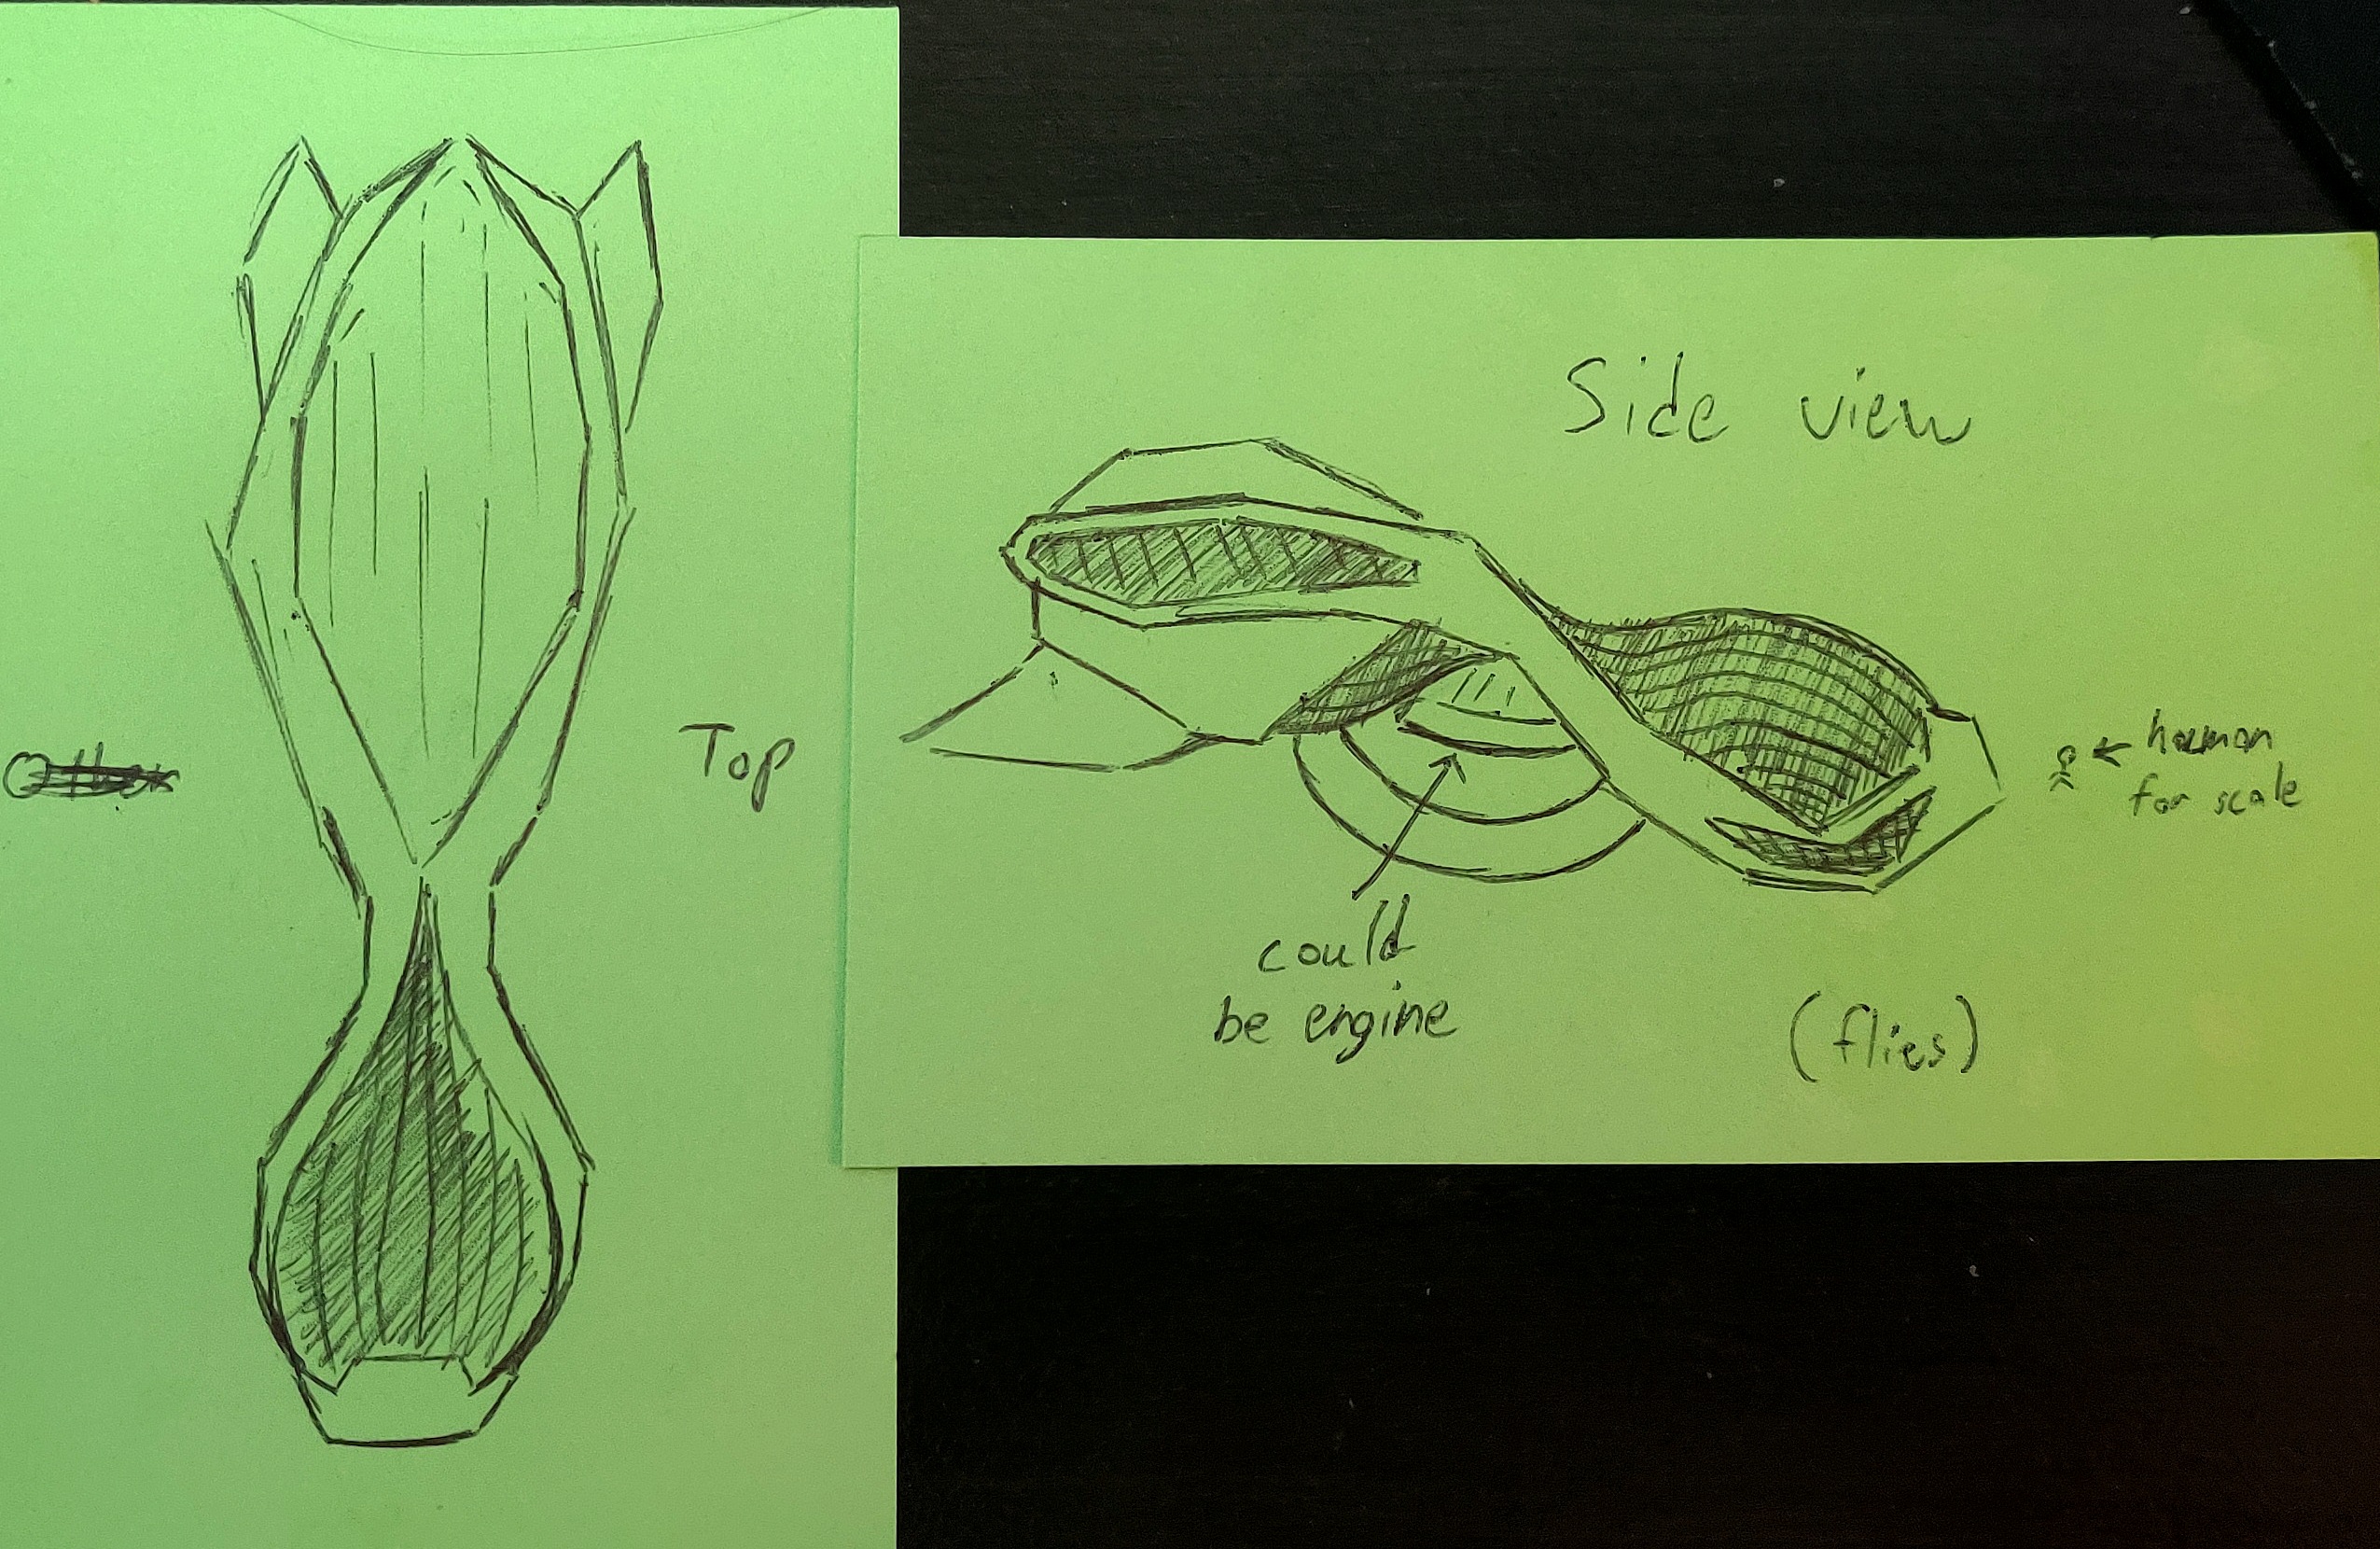 Top
Side view
human
for scale
could
be engine
(flies)